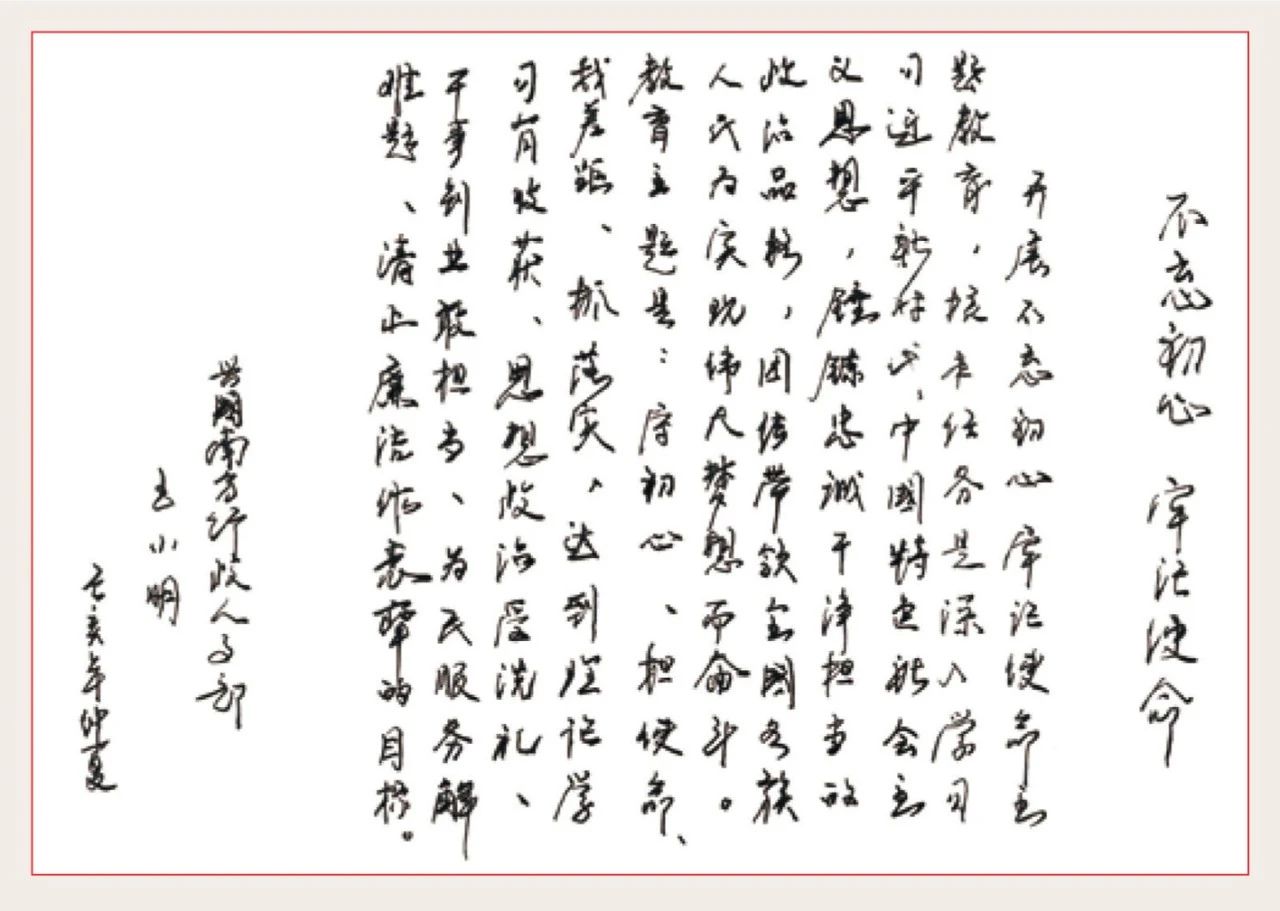 不忘初心 牢记使命
开展不忘初心牢记使命主
题教育，根本任务是深入学习
习近平新时代中國特色社会主
义思想，锤鍊忠诚干净担当的
政治品格，团结带领全國各族
人民为实现伟大梦想而奋斗。
教育主题是：守初心、担使命、
找差距、抓落实、达到理论学
习有收获、思想政治受洗礼、
干事创业敢担当、为民服务解
难题、清正廉洁作表率的目标。
國南方行政人事部
小明
己亥年仲夏